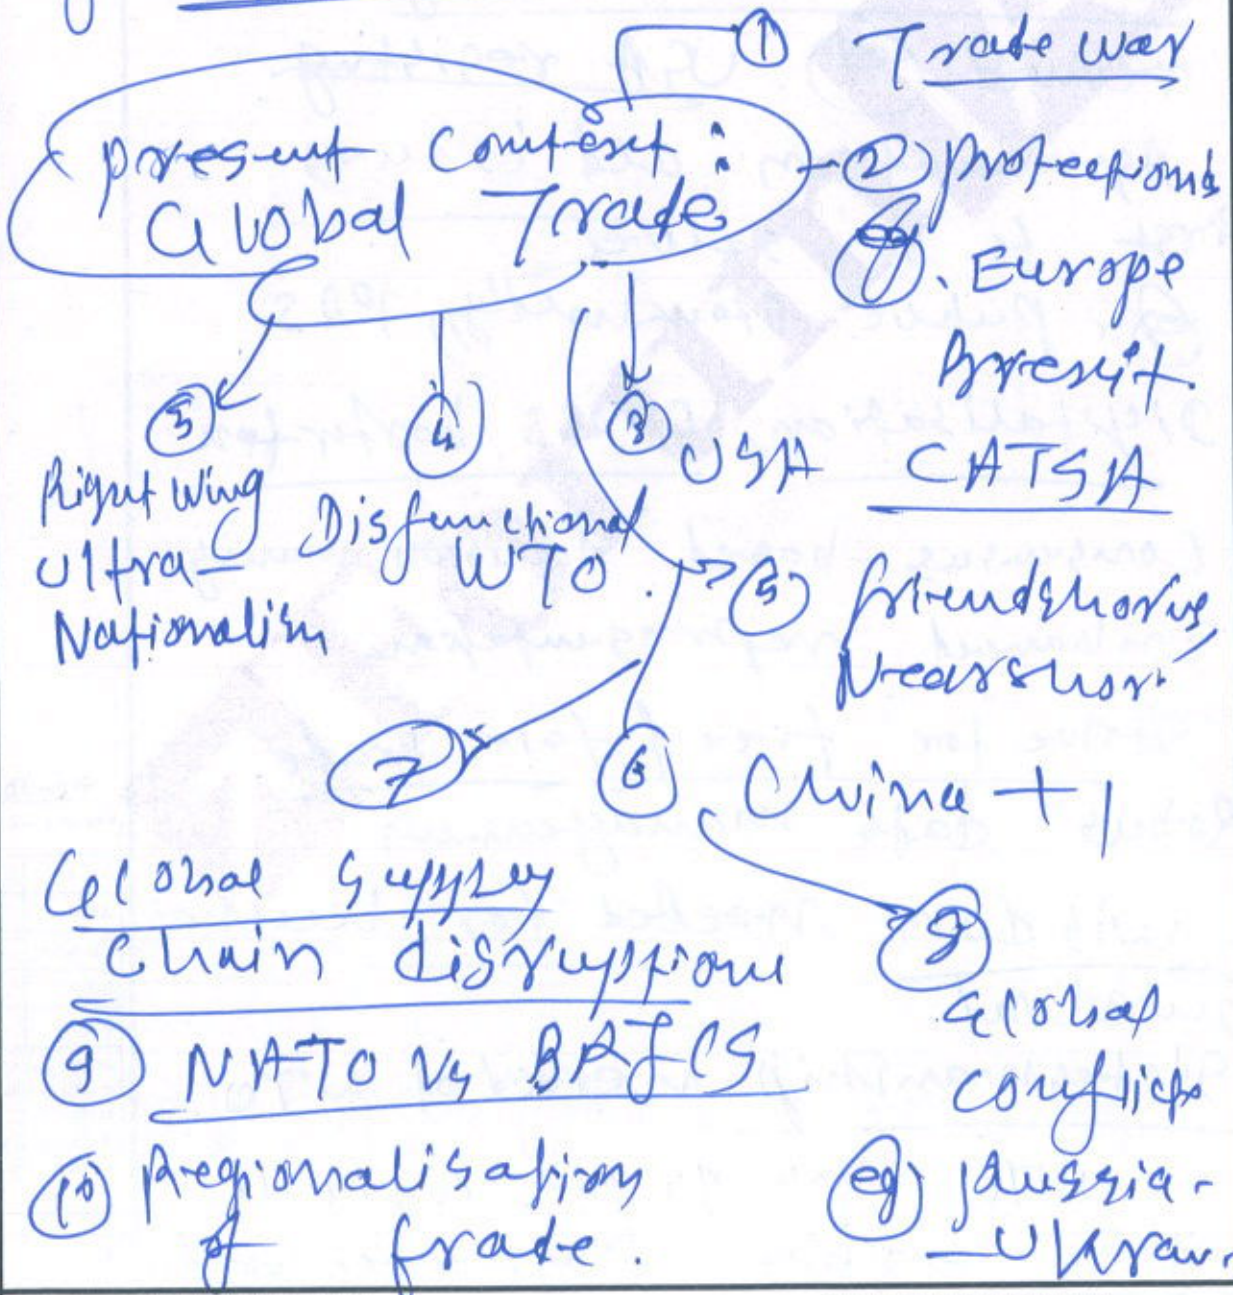 ① Trade war
present Context :
Global Trade
② Protectionis
eg. Europe
Brexit.
③ USA CATSA
④ Disfunctional
WTO.
⑤ Right wing
Ultra-
Nationalism
⑤ friendshoring,
Nearshor.
⑥ China + 1
⑦
Global Supply
Chain disruptions
⑧
Global
Conflicts
eg. Russia-
-Ukrain.
⑨ NATO Vs BRICS
⑩ Regionalisation
of trade.